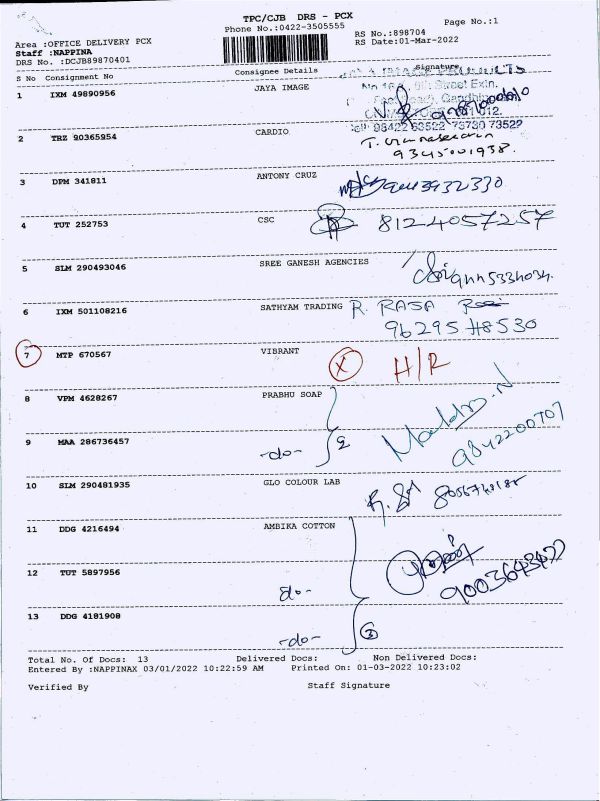 TPC/CJB DRS - PCX
Phone No.:0422-3505555
Page No.:1
Area :OFFICE DELIVERY PCX
Staff :NAPPINA
DRS No. :DCJB89870401
RS No.:898704
RS Date:01-Mar-2022
S No Consignment No Consignee Details Signature
1 IXM 49890956 JAYA IMAGE
Tel: 98422 63522 73730 73522
2 TRZ 90365954 CARDIO
3 DPM 341811 ANTONY CRUZ
4 TUT 252753 CSC 8124057257
5 SLM 290493046 SREE GANESH AGENCIES
6 IXM 501108216 SATHYAM TRADING R. RAJA
96295 48530
7 MTP 670567 VIBRANT X H/R
8 VPM 4628267 PRABHU SOAP
9 MAA 286736457 -do- 2
9842200707
10 SLM 290481935 GLO COLOUR LAB
11 DDG 4216494 AMBIKA COTTON
12 TUT 5897956 do-
13 DDG 4181908 -do- 3
Total No. Of Docs: 13 Delivered Docs: Non Delivered Docs:
Entered By :NAPPINAX 03/01/2022 10:22:59 AM Printed On: 01-03-2022 10:23:02
Verified By Staff Signature